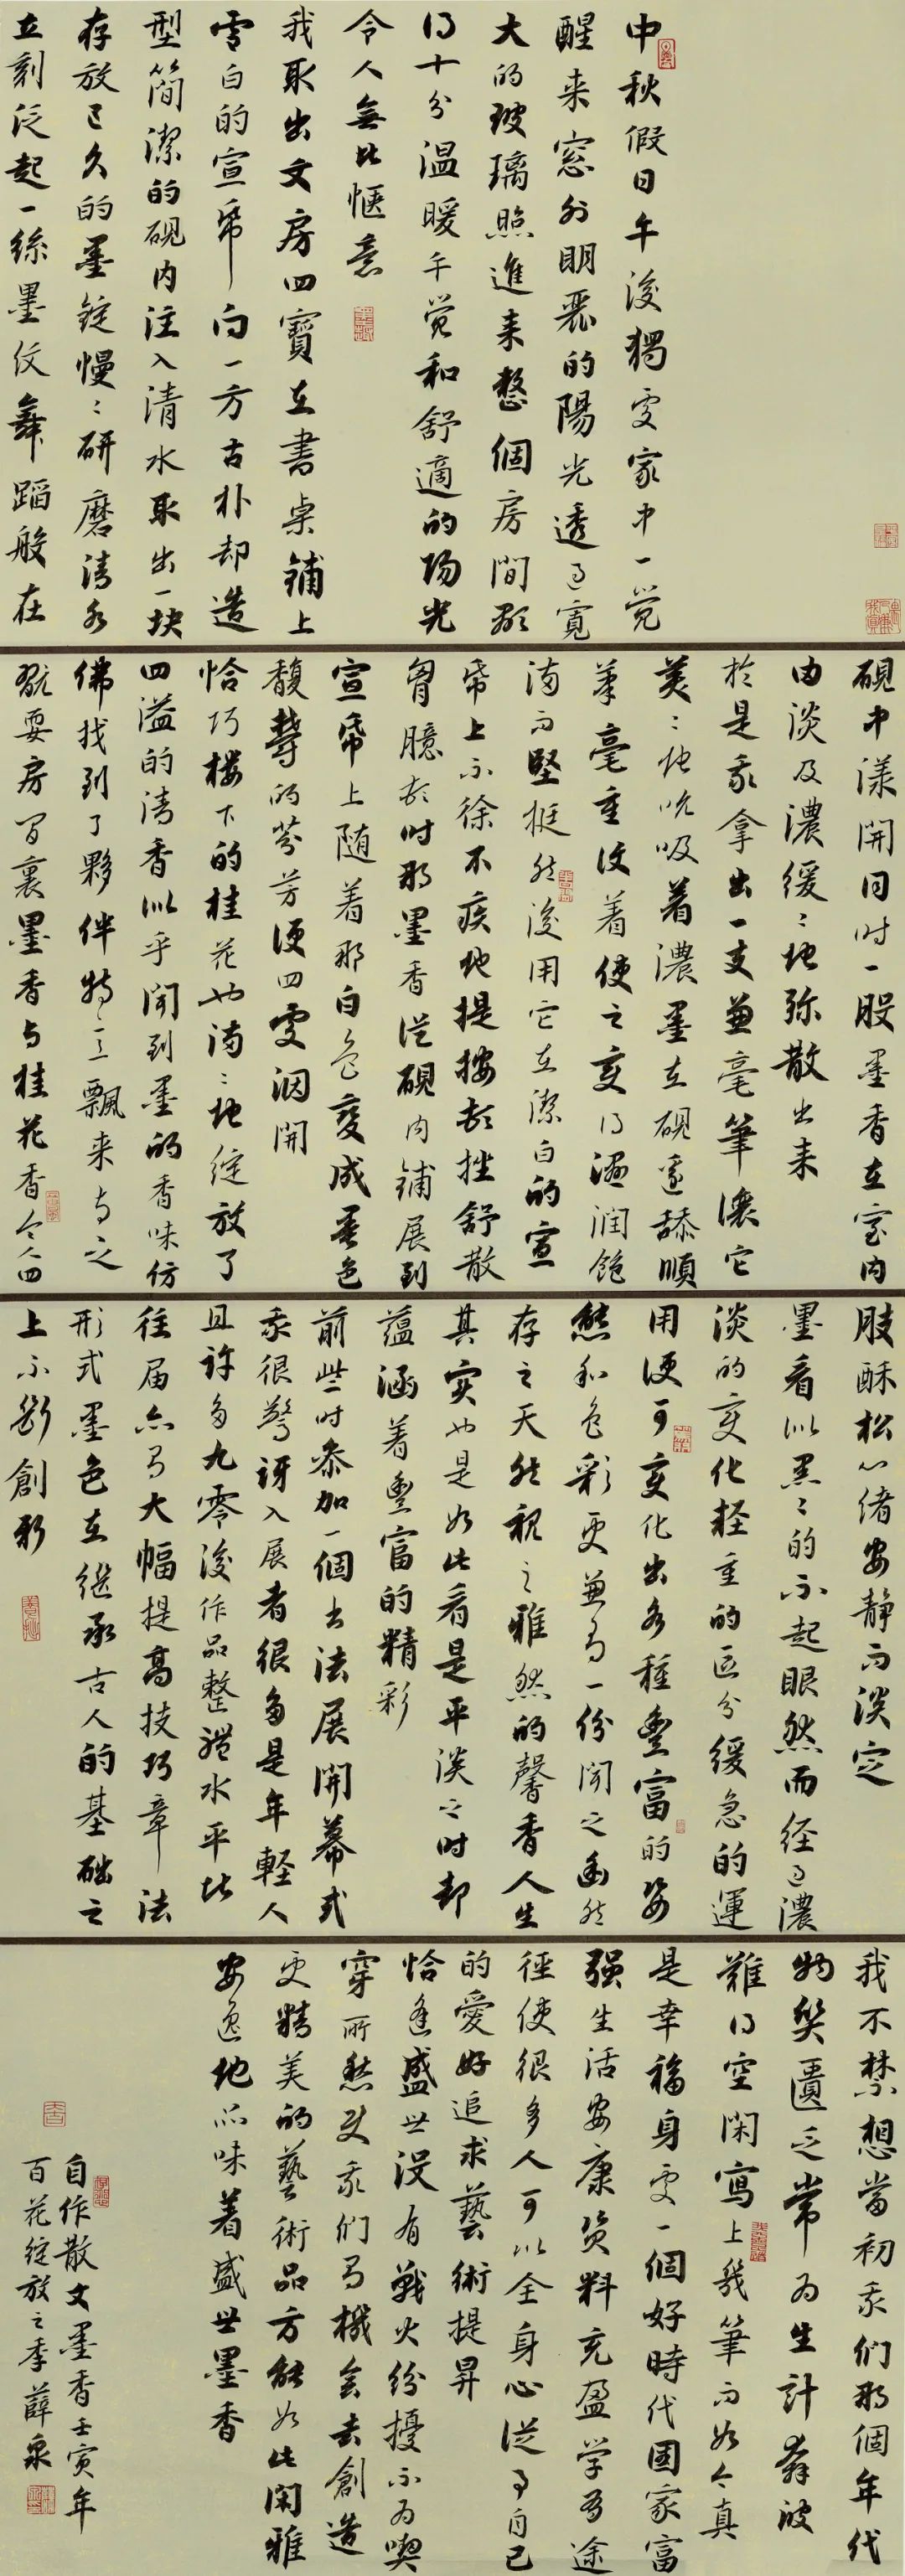 中秋假日午後獨處家中一觉
醒来窓外明麗的陽光透过寬
大的玻璃照進来整個房間顯
得十分温暖午觉和舒適的陽光
令人無比惬意
我取出文房四寶在書桌鋪上
雪白的宣纸向一方古朴却造
型简潔的硯内注入清水取出一块
存放已久的墨錠慢慢研磨清水
立刻泛起一絲墨纹舞蹈般在
硯中漾開同时一股墨香在室内
由淡及濃缓缓地弥散出来
於是我拿出一支兼毫筆讓它
美美地吮吸着濃墨在硯邊舔順
筆毫重復着使之变得濕潤飽
满而堅挺然後用它在潔白的宣
纸上不徐不疾地提按頓挫舒散
胸臆頓时那墨香從硯内鋪展到
宣纸上随着那白色變成墨色
馥郁的芬芳便四處洇開
恰巧楼下的桂花也满满地綻放了
四溢的清香似乎聞到墨的香味仿
佛找到了夥伴特特飄来与之
戲耍房间裏墨香与桂花香令人四
肢酥松心绪安静而淡定
墨看似黑黑的不起眼然而经过濃
淡的变化輕重的区分緩急的運
用便可变化出各種豐富的姿
態和色彩更兼有一份聞之幽然
存之天然視之雅然的馨香人生
其实也是如此看是平淡之时却
蕴涵着豐富的精彩
前些时参加一個书法展開幕式
我很驚讶入展者很多是年輕人
且许多九零後作品整體水平比
往届亦有大幅提高技巧章法
形式墨色在继承古人的基础之
上不斷創新
我不禁想當初我们那個年代
物質匱乏常为生計奔波
難得空閑寫上幾筆而如今真
是幸福身處一個好時代國家富
强生活安康资料充盈学习途
徑使很多人可以全身心從事自己
的愛好追求藝術提昇
恰逢盛世没有戰火纷擾不为喫
穿所愁使我们有機会去創造
更精美的藝術品方能如此閑雅
安逸地品味着盛世墨香
自作散文墨香壬寅年
百花綻放之季薛泉